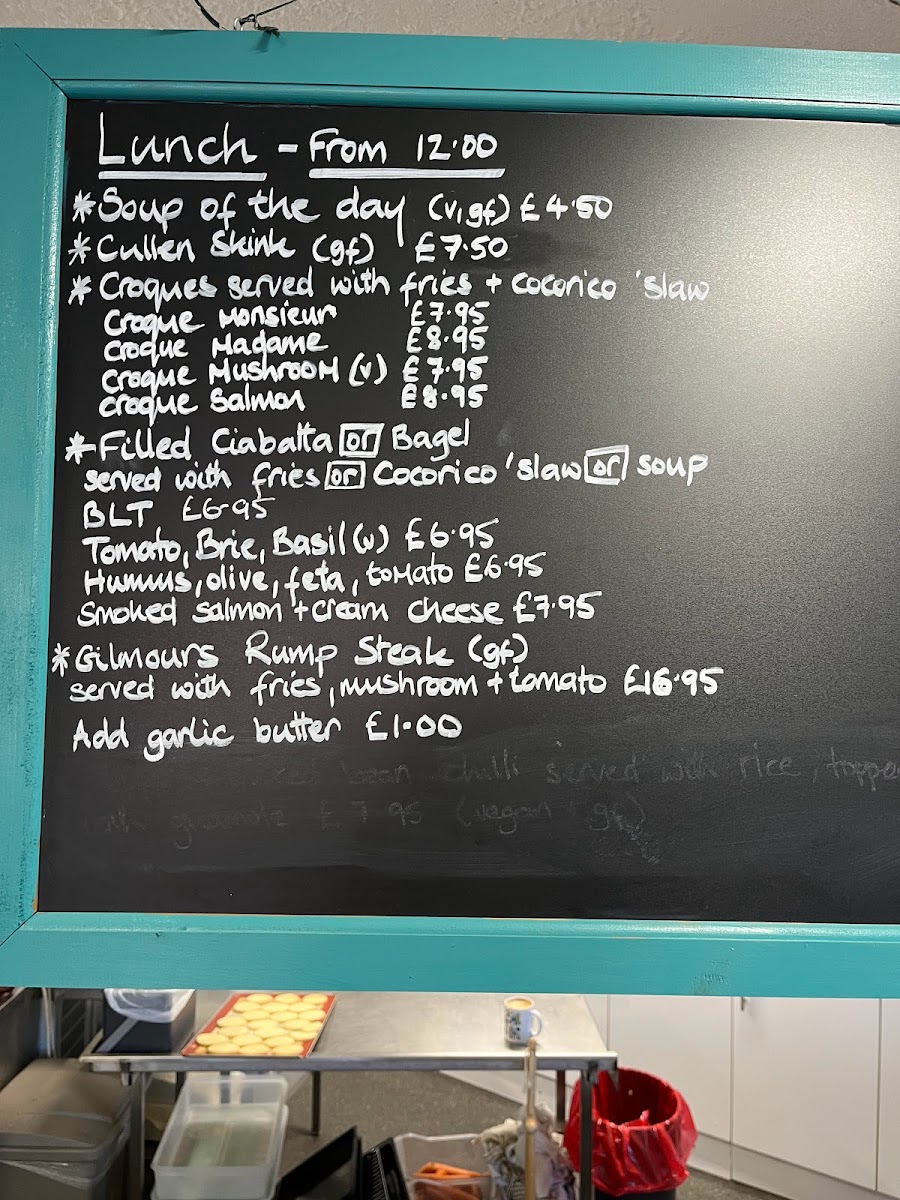 Lunch - From 12.00
*Soup of the day (v,gf) £4.50
*Cullen Skink (gf) £7.50
*Croques served with fries + cocorico 'slaw
Croque Monsieur £7.95
Croque Madame £8.95
Croque Mushroom (v) £7.95
Croque Salmon £8.95
*Filled Ciabatta or Bagel
served with fries or Cocorico 'slaw or soup
BLT £6.95
Tomato, Brie, Basil (v) £6.95
Humus, olive, feta, tomato £6.95
Smoked salmon + cream cheese £7.95
*Gilmours Rump Steak (gf)
served with fries, mushroom + tomato £16.95
Add garlic butter £1.00
bean chilli served with rice, toppe
£7.95 (vegan gf)